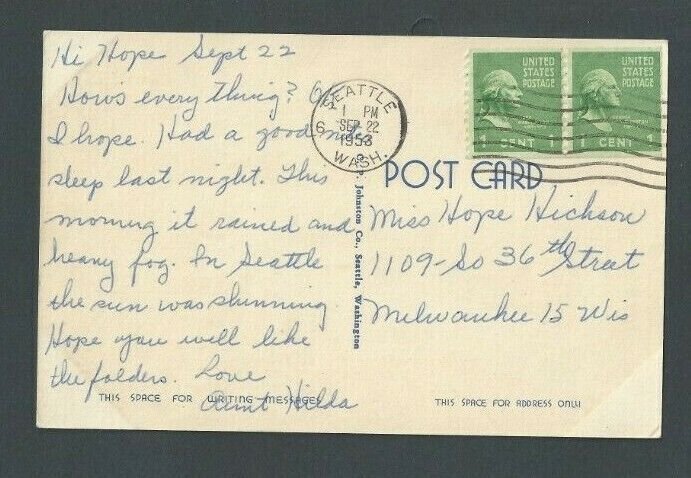 Hi Hope Sept 22
How's every thing? OK
I hope. Had a good nites
sleep last night. This
morning it rained and
heavy fog. In Seattle
the sun was shinning.
Hope you will like
the folders. Love
Aunt Hilda
THIS SPACE FOR WRITING MESSAGES
SEATTLE
1 PM
SEP 22
1953
WASH.
6
UNITED
STATES
POSTAGE
1 CENT 1
UNITED
STATES
POSTAGE
1 CENT 1
POST CARD
C. P. Johnston Co., Seattle, Washington
Miss Hope Hickson
1109-So 36th Street
Milwaukee 15 Wis
THIS SPACE FOR ADDRESS ONLY